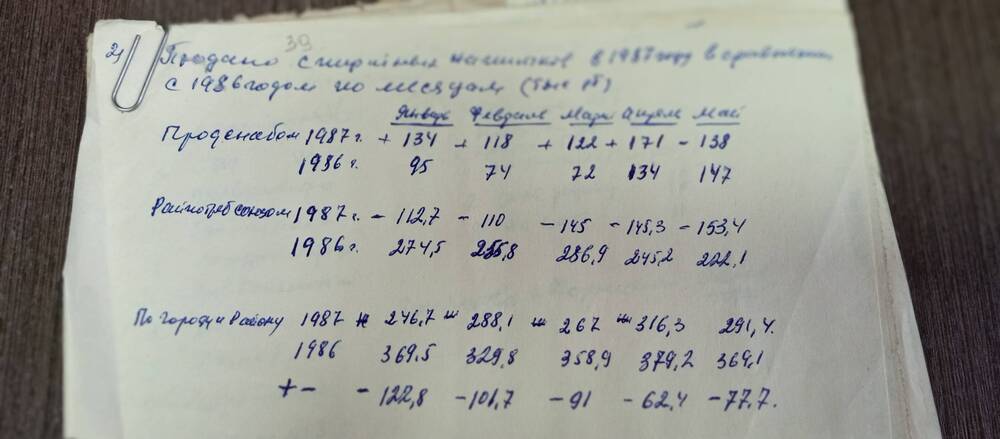 39
2) Продано спиртных напитков в 1987 году в сравнении
с 1986 годом по месяцам (тыс р)
Январь Февраль Март Апрель Май
Проснабом 1987 г. + 134 + 118 + 122 + 171 - 138
1986 г. 95 74 72 134 147
Райпотребсоюзом 1987 г. - 112,7 - 110 - 145 - 145,3 - 153,4
1986 г. 274,5 255,8 286,9 245,2 222,1
По городу и району 1987 246,7 288,1 267 316,3 291,4.
1986 369,5 329,8 358,9 379,2 369,1
+ - - 122,8 - 101,7 - 91 - 62,4 - 77,7.